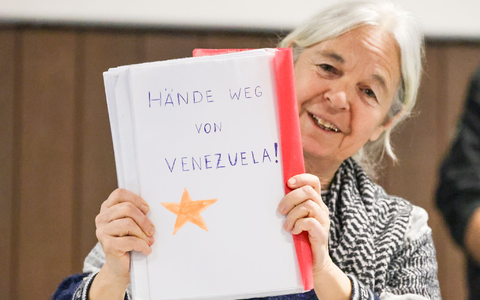 HÄNDE WEG
VON
VENEZUELA!